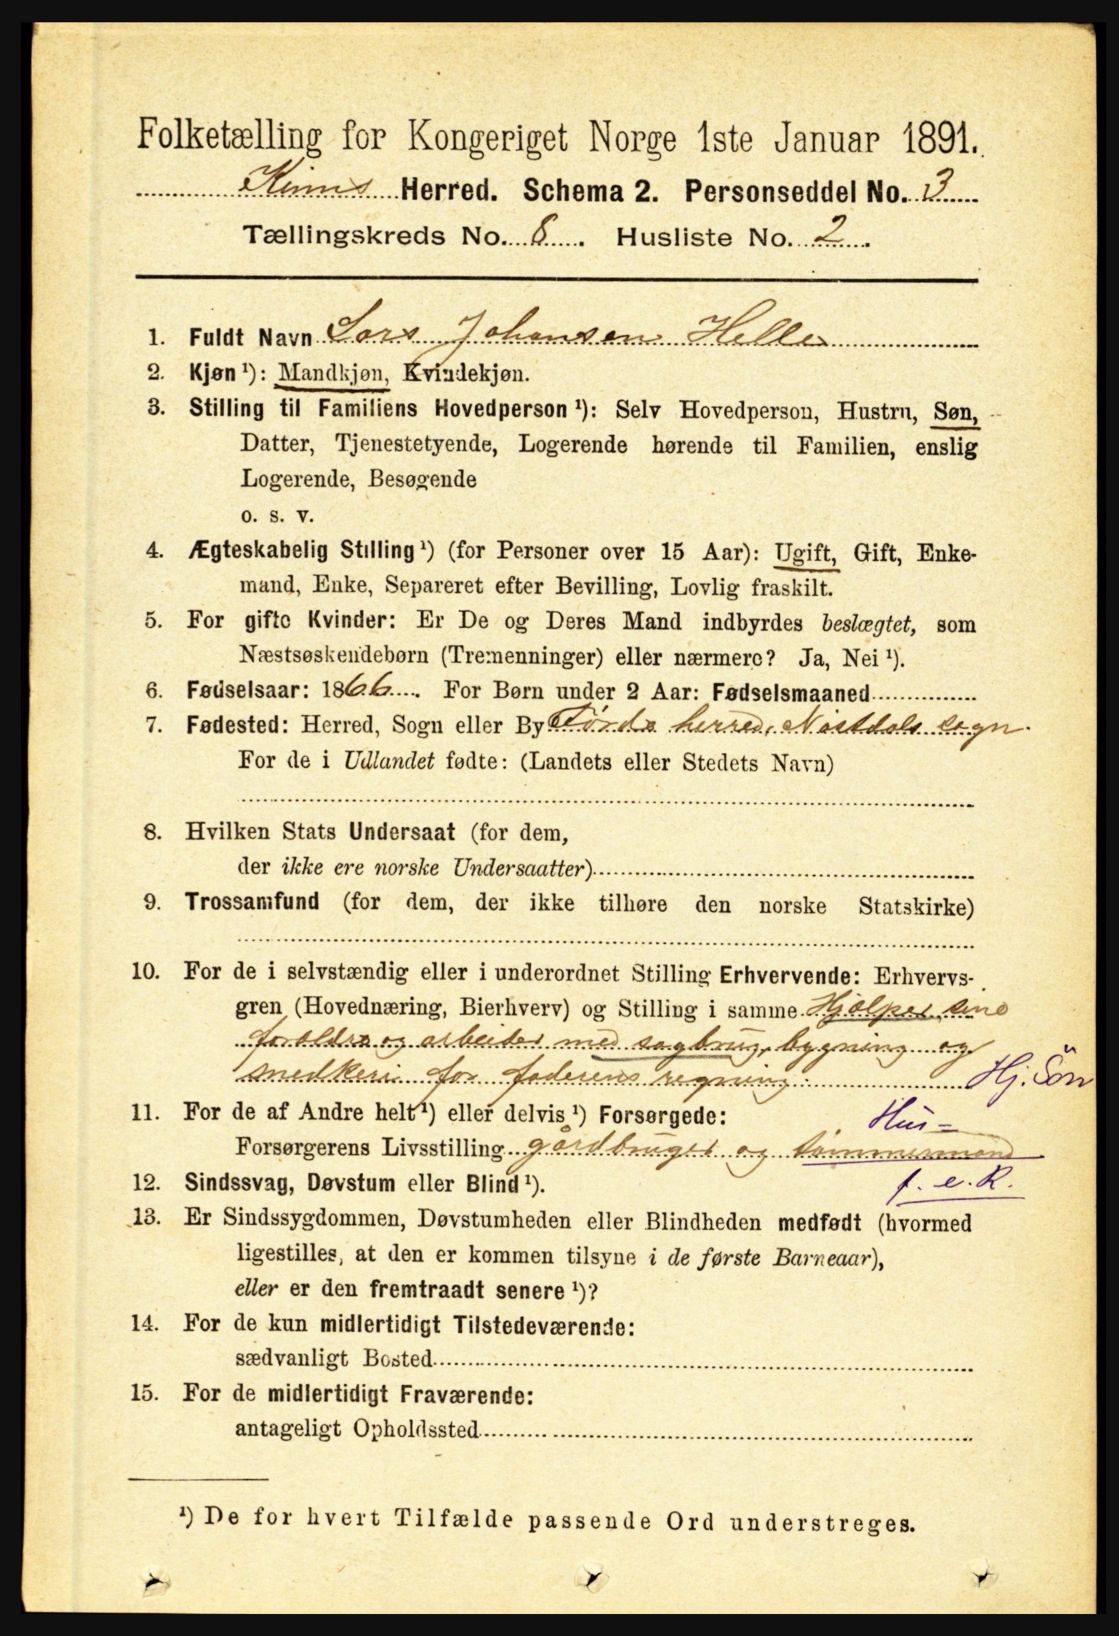 Folketælling for Kongeriget Norge 1ste Januar 1891.
Kinns Herred. Schema 2. Personseddel No. 3
Tællingskreds No. 8. Husliste No. 2.
1. Fuldt Navn Lars Johansen Helle
2. Kjøn ¹): Mandkjøn, Kvindekjøn.
3. Stilling til Familiens Hovedperson ¹): Selv Hovedperson, Hustru, Søn,
Datter, Tjenestetyende, Logerende hørende til Familien, enslig
Logerende, Besøgende
o. s. v.
4. Ægteskabelig Stilling ¹) (for Personer over 15 Aar): Ugift, Gift, Enke-
mand, Enke, Separeret efter Bevilling, Lovlig fraskilt.
5. For gifte Kvinder: Er De og Deres Mand indbyrdes beslægtet, som
Næstsøskendebørn (Tremenninger) eller nærmere? Ja, Nei ¹).
6. Fødselsaar: 1866. For Børn under 2 Aar: Fødselsmaaned
7. Fødested: Herred, Sogn eller By Førde herred, Nøstdals sogn.
For de i Udlandet fødte: (Landets eller Stedets Navn)
8. Hvilken Stats Undersaat (for dem,
der ikke ere norske Undersaatter)
9. Trossamfund (for dem, der ikke tilhøre den norske Statskirke)
10. For de i selvstændig eller i underordnet Stilling Erhvervende: Erhvervs-
gren (Hovednæring, Bierhverv) og Stilling i samme Hjælper sine
forældre og arbeider med sagbrug, bygning og
snedkeri for faderens regning. Hj. Søn
11. For de af Andre helt ¹) eller delvis ¹) Forsørgede: Hus-
Forsørgerens Livsstilling gårdbruger og tømmermand
12. Sindssvag, Døvstum eller Blind ¹). f. e. R.
13. Er Sindssygdommen, Døvstumheden eller Blindheden medfødt (hvormed
ligestilles, at den er kommen tilsyne i de første Barneaar),
eller er den fremtraadt senere ¹)?
14. For de kun midlertidigt Tilstedeværende:
sædvanligt Bosted
15. For de midlertidigt Fraværende:
antageligt Opholdssted
¹) De for hvert Tilfælde passende Ord understreges.